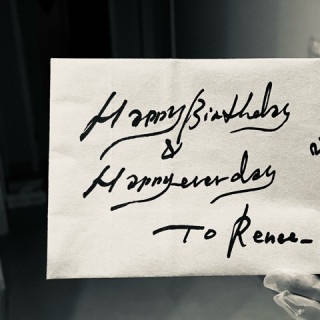 Happy Birthday
&
Happy everday
To Renee